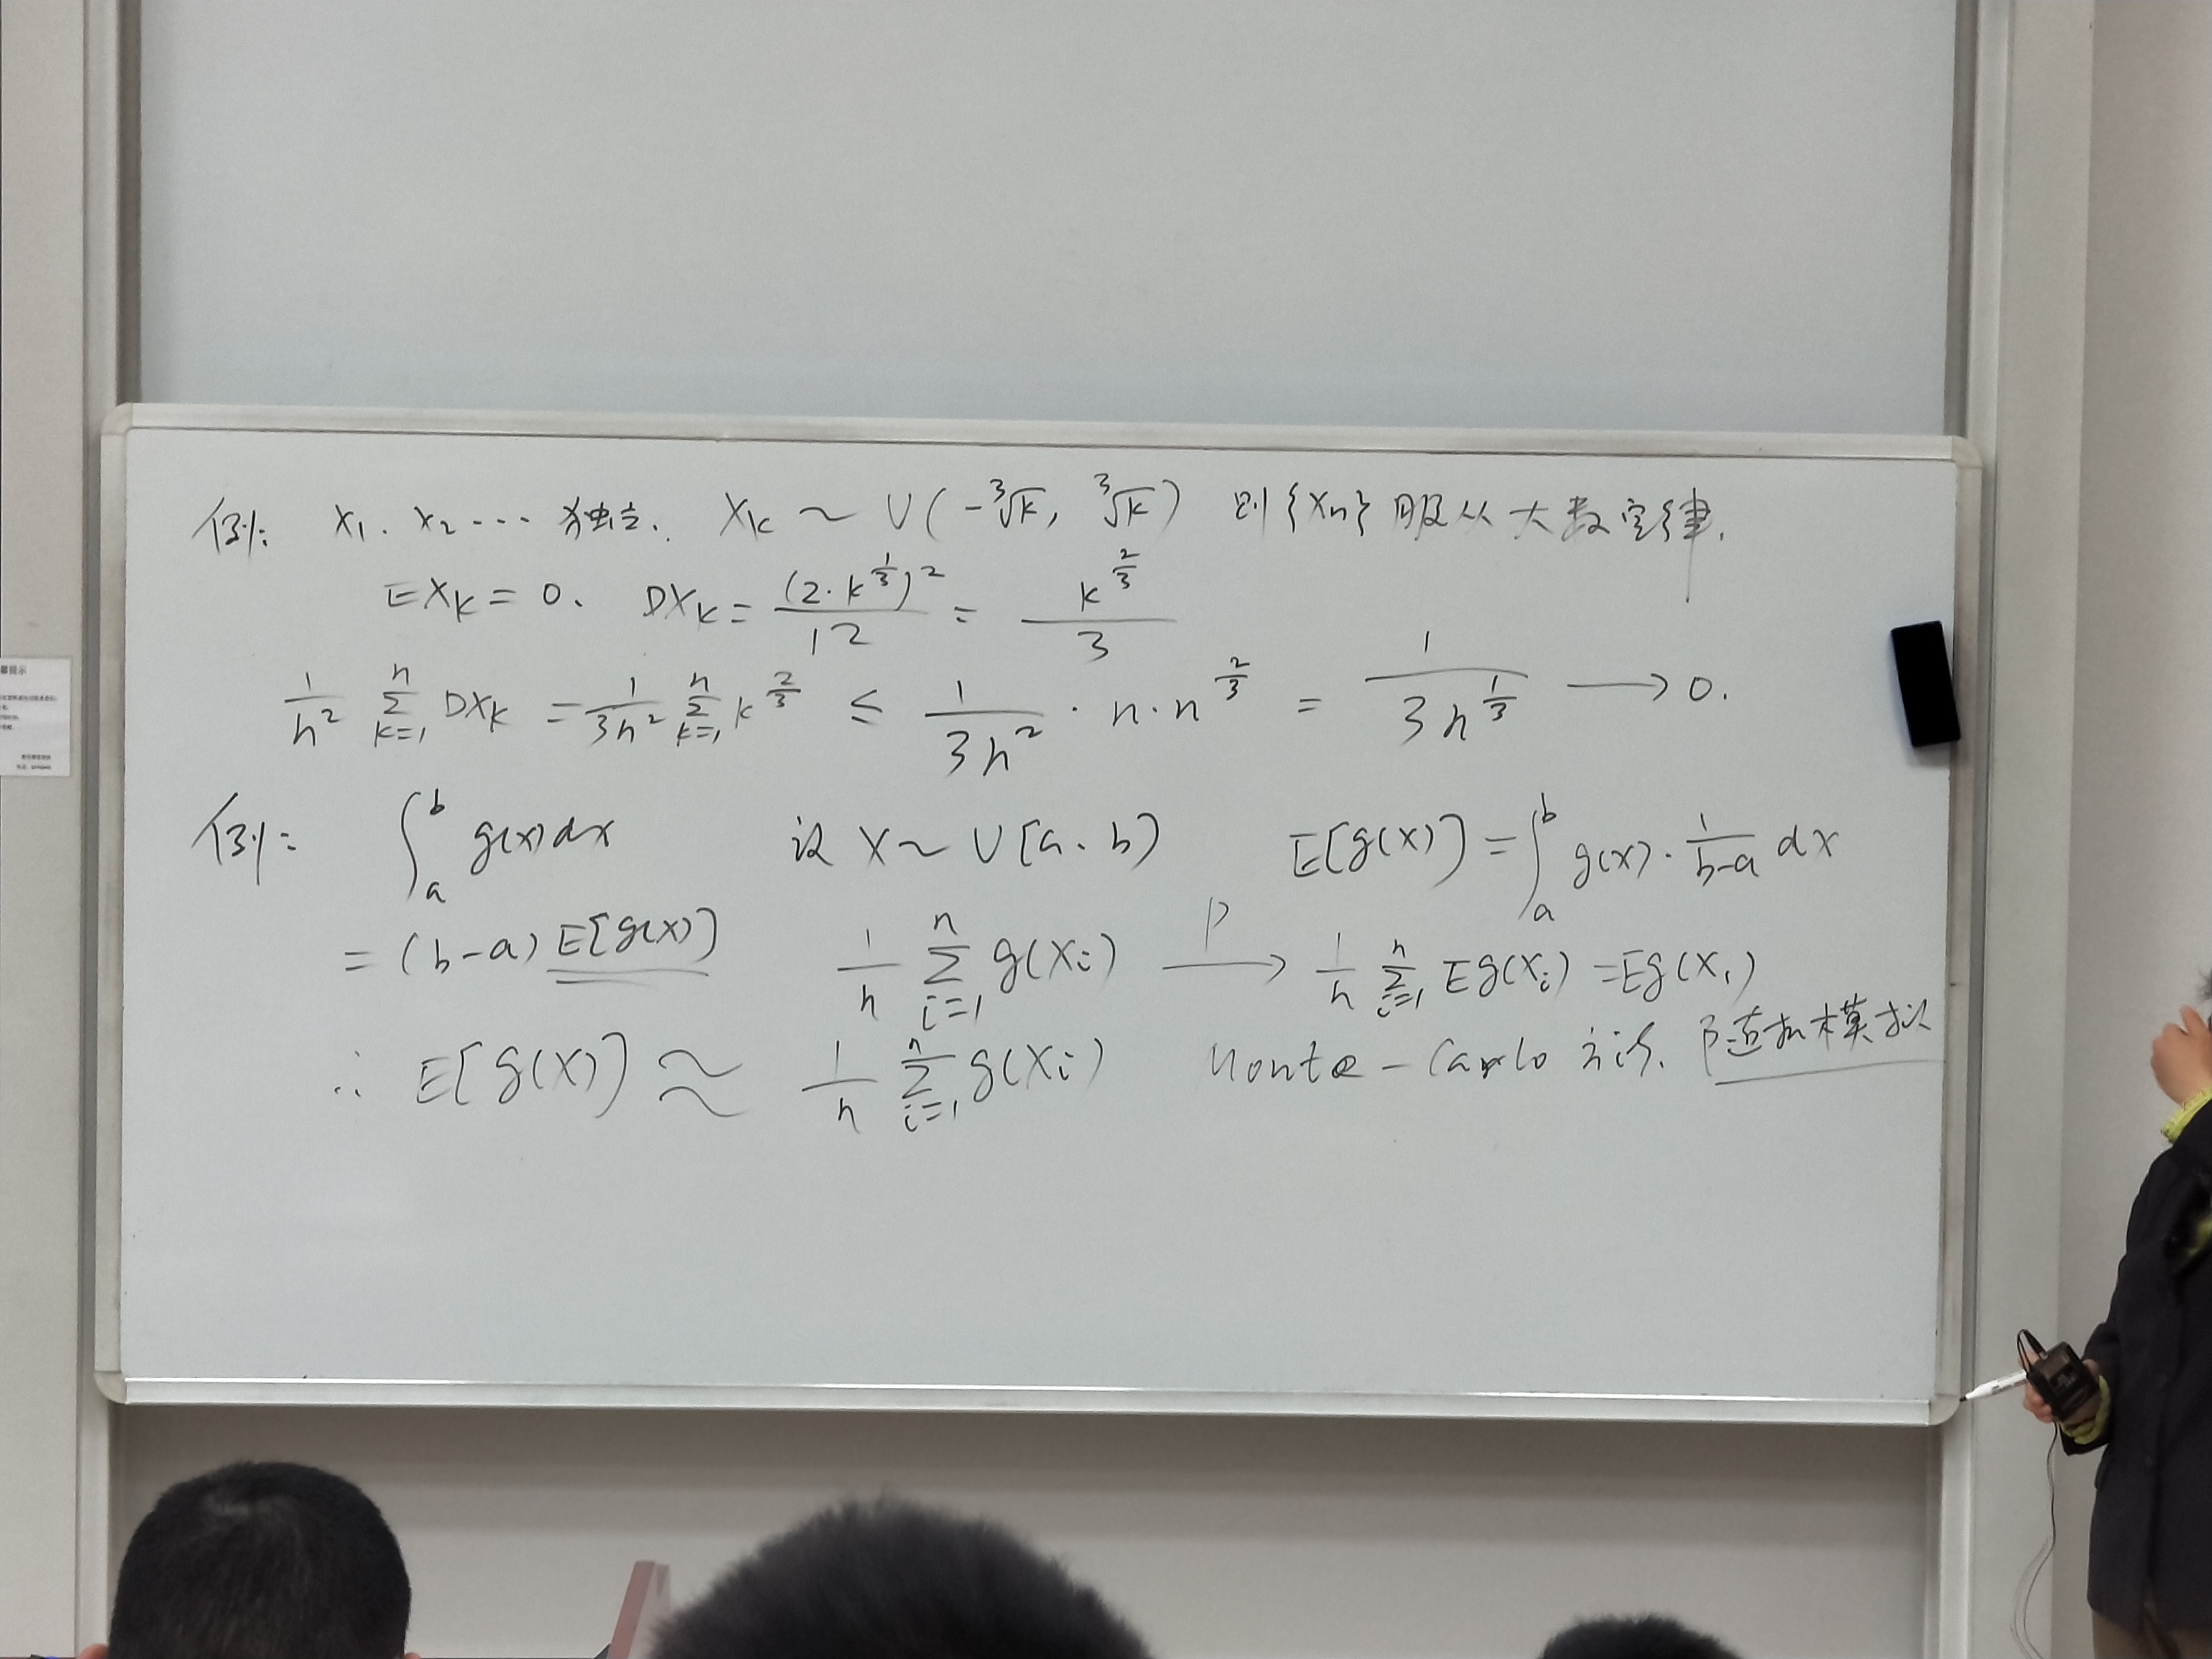 例: X₁. X₂ ... 独立. X_k ~ U(-∛k, ∛k) 则{Xn}服从大数定律.
EX_k = 0. DX_k = (2·k^{1/3})² / 12 = k^{2/3} / 3
1/n² ∑_{k=1}^{n} DX_k = 1/3n² ∑_{k=1}^{n} k^{2/3} ≤ 1/3n² · n · n^{2/3} = 1/(3n^{1/3}) → 0.
例: ∫_a^b g(x)dx 设 X ~ U[a. b) E[g(X)] = ∫_a^b g(x) · 1/(b-a) dx
= (b-a) E[g(X)] 1/n ∑_{i=1}^{n} g(Xi) →^P 1/n ∑_{i=1}^{n} Eg(Xi) = Eg(X₁)
∴ E[g(X)] ≈ 1/n ∑_{i=1}^{n} g(Xi) Monte-Carlo 方法. 随机模拟